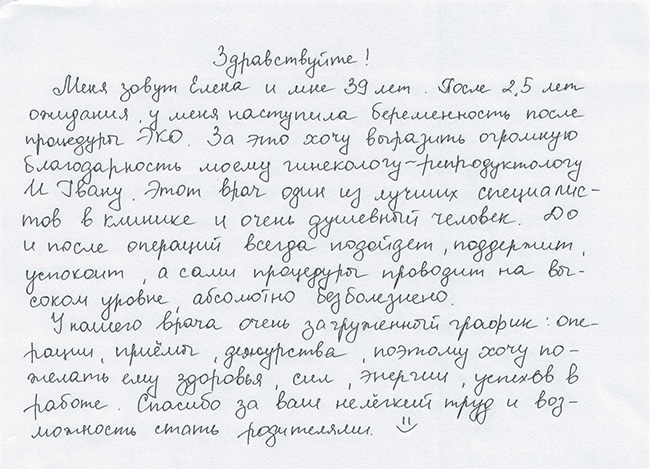 Здравствуйте!
Меня зовут Елена и мне 39 лет. После 2,5 лет
ожидания, у меня наступила беременность после
процедуры ЭКО. За это хочу выразить огромную
благодарность моему гинекологу-репродуктологу
И Гвану. Этот врач один из лучших специалис-
тов в клинике и очень душевный человек. До
и после операций всегда подойдет, поддержит,
успокоит, а сами процедуры проводит на вы-
соком уровне, абсолютно безболезнено.
У нашего врача очень загруженный график: опе-
рации, приёмы, дежурства, поэтому хочу по-
желать ему здоровья, сил, энергии, успехов в
работе. Спасибо за ваш нелёгкий труд и воз-
можность стать родителями.